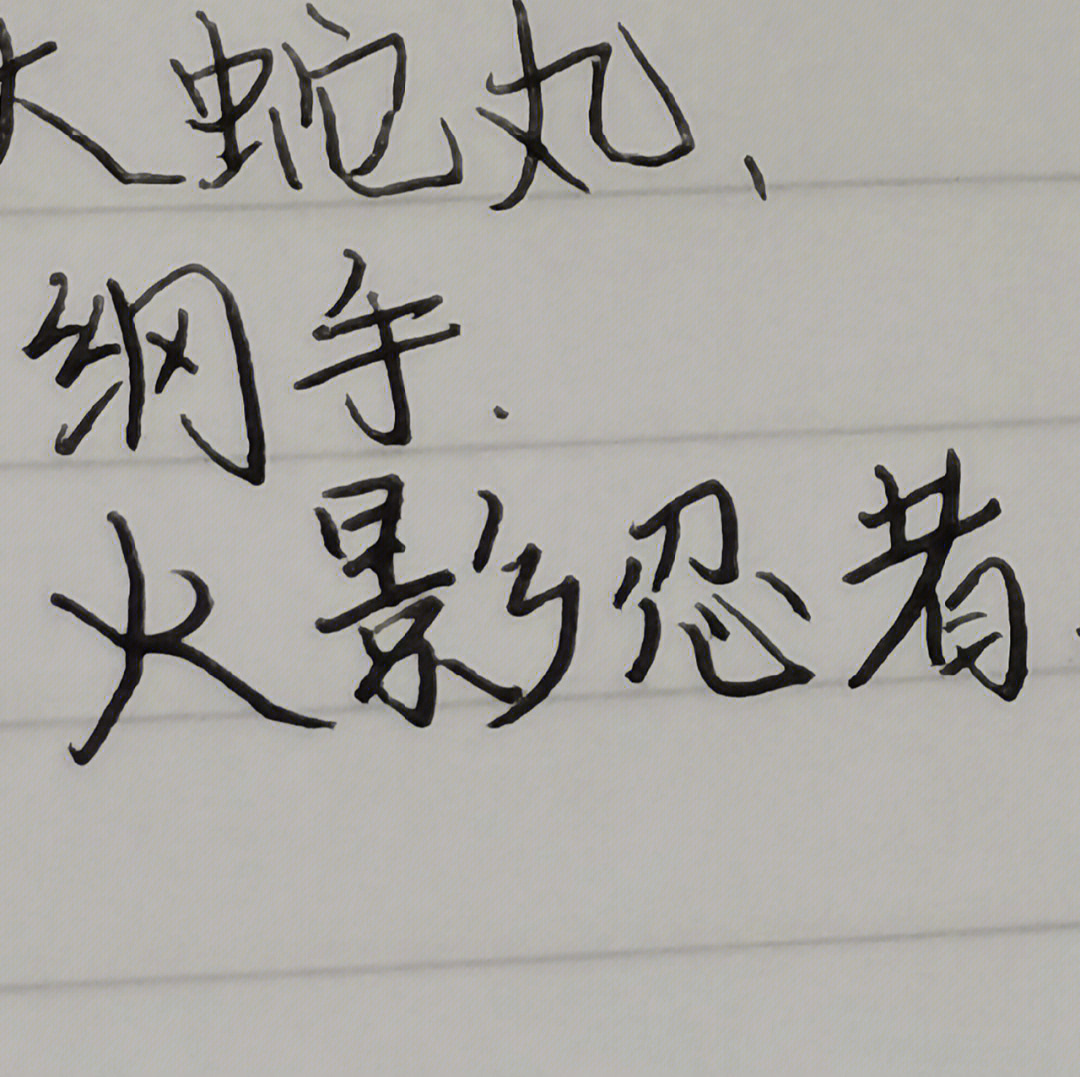 大蛇丸、
纲手.
火影忍者.